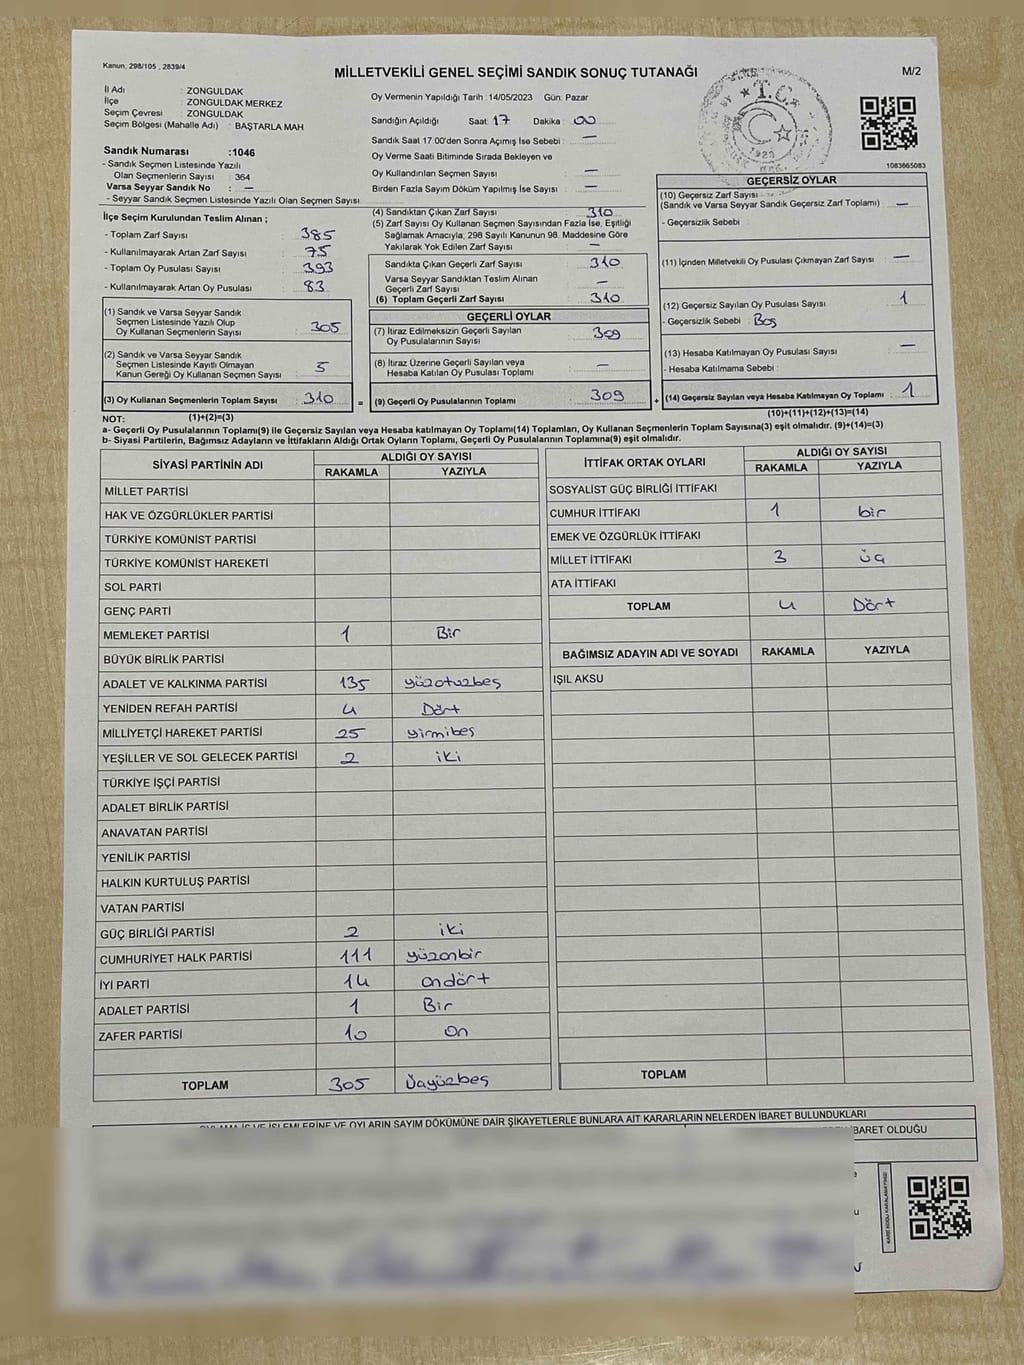 Kanun, 298/105 , 2839/4
MİLLETVEKİLİ GENEL SEÇİMİ SANDIK SONUÇ TUTANAĞI
M/2
T.C.
1923
İl Adı : ZONGULDAK
İlçe : ZONGULDAK MERKEZ
Seçim Çevresi : ZONGULDAK
Seçim Bölgesi (Mahalle Adı) : BAŞTARLA MAH
Sandık Numarası :1046
- Sandık Seçmen Listesinde Yazılı
Olan Seçmenlerin Sayısı : 364
Varsa Seyyar Sandık No : —
- Seyyar Sandık Seçmen Listesinde Yazılı Olan Seçmen Sayısı:
Oy Vermenin Yapıldığı Tarih :14/05/2023 Gün: Pazar
Sandığın Açıldığı Saat: 17 Dakika : 00
Sandık Saat 17.00'den Sonra Açımış İse Sebebi : —
Oy Verme Saati Bitiminde Sırada Bekleyen ve
Oy Kullandırılan Seçmen Sayısı : —
Birden Fazla Sayım Döküm Yapılmış İse Sayısı : —
1083665083
İlçe Seçim Kurulundan Teslim Alınan ;
- Toplam Zarf Sayısı : 385
- Kullanılmayarak Artan Zarf Sayısı : 75
- Toplam Oy Pusulası Sayısı : 393
- Kullanılmayarak Artan Oy Pusulası : 83
(1) Sandık ve Varsa Seyyar Sandık
Seçmen Listesinde Yazılı Olup
Oy Kullanan Seçmenlerin Sayısı : 305
(2) Sandık ve Varsa Seyyar Sandık
Seçmen Listesinde Kayıtlı Olmayan
Kanun Gereği Oy Kullanan Seçmen Sayısı : 5
(3) Oy Kullanan Seçmenlerin Toplam Sayısı : 310 =
(4) Sandıktan Çıkan Zarf Sayısı : 310
(5) Zarf Sayısı Oy Kullanan Seçmen Sayısından Fazla İse, Eşitliği
Sağlamak Amacıyla, 298 Sayılı Kanunun 98. Maddesine Göre
Yakılarak Yok Edilen Zarf Sayısı : —
Sandıkta Çıkan Geçerli Zarf Sayısı : 310
Varsa Seyyar Sandıktan Teslim Alınan
Geçerli Zarf Sayısı : —
(6) Toplam Geçerli Zarf Sayısı : 310
GEÇERLİ OYLAR
(7) İtiraz Edilmeksizin Geçerli Sayılan
Oy Pusulalarının Sayısı : 309
(8) İtiraz Üzerine Geçerli Sayılan veya
Hesaba Katılan Oy Pusulası Toplamı : —
(9) Geçerli Oy Pusulalarının Toplamı : 309 +
GEÇERSİZ OYLAR
(10) Geçersiz Zarf Sayısı
(Sandık ve Varsa Seyyar Sandık Geçersiz Zarf Toplamı) : —
- Geçersizlik Sebebi :
(11) İçinden Milletvekili Oy Pusulası Çıkmayan Zarf Sayısı : —
(12) Geçersiz Sayılan Oy Pusulası Sayısı : 1
- Geçersizlik Sebebi : Boş
(13) Hesaba Katılmayan Oy Pusulası Sayısı : —
- Hesaba Katılmama Sebebi :
(14) Geçersiz Sayılan veya Hesaba Katılmayan Oy Toplamı : 1
NOT: (1)+(2)=(3) (10)+(11)+(12)+(13)=(14)
a- Geçerli Oy Pusulasının Toplamı(9) ile Geçersiz Sayılan veya Hesaba katılmayan Oy Toplamı(14) Toplamları, Oy Kullanan Seçmenlerin Toplam Sayısına(3) eşit olmalıdır. (9)+(14)=(3)
b- Siyasi Partilerin, Bağımsız Adayların ve İttifakların Aldığı Ortak Oyların Toplamı, Geçerli Oy Pusulalarının Toplamına(9) eşit olmalıdır.
SİYASİ PARTİNİN ADI ALDIĞI OY SAYISI
RAKAMLA YAZIYLA
MİLLET PARTİSİ
HAK VE ÖZGÜRLÜKLER PARTİSİ
TÜRKİYE KOMÜNİST PARTİSİ
TÜRKİYE KOMÜNİST HAREKETİ
SOL PARTİ
GENÇ PARTİ
MEMLEKET PARTİSİ 1 Bir
BÜYÜK BİRLİK PARTİSİ
ADALET VE KALKINMA PARTİSİ 135 yüzotuzbeş
YENİDEN REFAH PARTİSİ 4 Dört
MİLLİYETÇİ HAREKET PARTİSİ 25 yirmibeş
YEŞİLLER VE SOL GELECEK PARTİSİ 2 iki
TÜRKİYE İŞÇİ PARTİSİ
ADALET BİRLİK PARTİSİ
ANAVATAN PARTİSİ
YENİLİK PARTİSİ
HALKIN KURTULUŞ PARTİSİ
VATAN PARTİSİ
GÜÇ BİRLİĞİ PARTİSİ 2 iki
CUMHURİYET HALK PARTİSİ 111 yüzonbir
İYİ PARTİ 14 ondört
ADALET PARTİSİ 1 Bir
ZAFER PARTİSİ 10 On
TOPLAM 305 Üçyüzbeş
İTTİFAK ORTAK OYLARI ALDIĞI OY SAYISI
RAKAMLA YAZIYLA
SOSYALİST GÜÇ BİRLİĞİ İTTİFAKI
CUMHUR İTTİFAKI 1 bir
EMEK VE ÖZGÜRLÜK İTTİFAKI
MİLLET İTTİFAKI 3 üç
ATA İTTİFAKI
TOPLAM 4 Dört
BAĞIMSIZ ADAYIN ADI VE SOYADI RAKAMLA YAZIYLA
IŞIL AKSU
TOPLAM
OYLAMA İŞ VE İŞLEMLERİNE VE OYLARIN SAYIM DÖKÜMÜNE DAİR ŞİKAYETLERLE BUNLARA AİT KARARLARIN NELERDEN İBARET BULUNDUKLARI
İBARET OLDUĞU